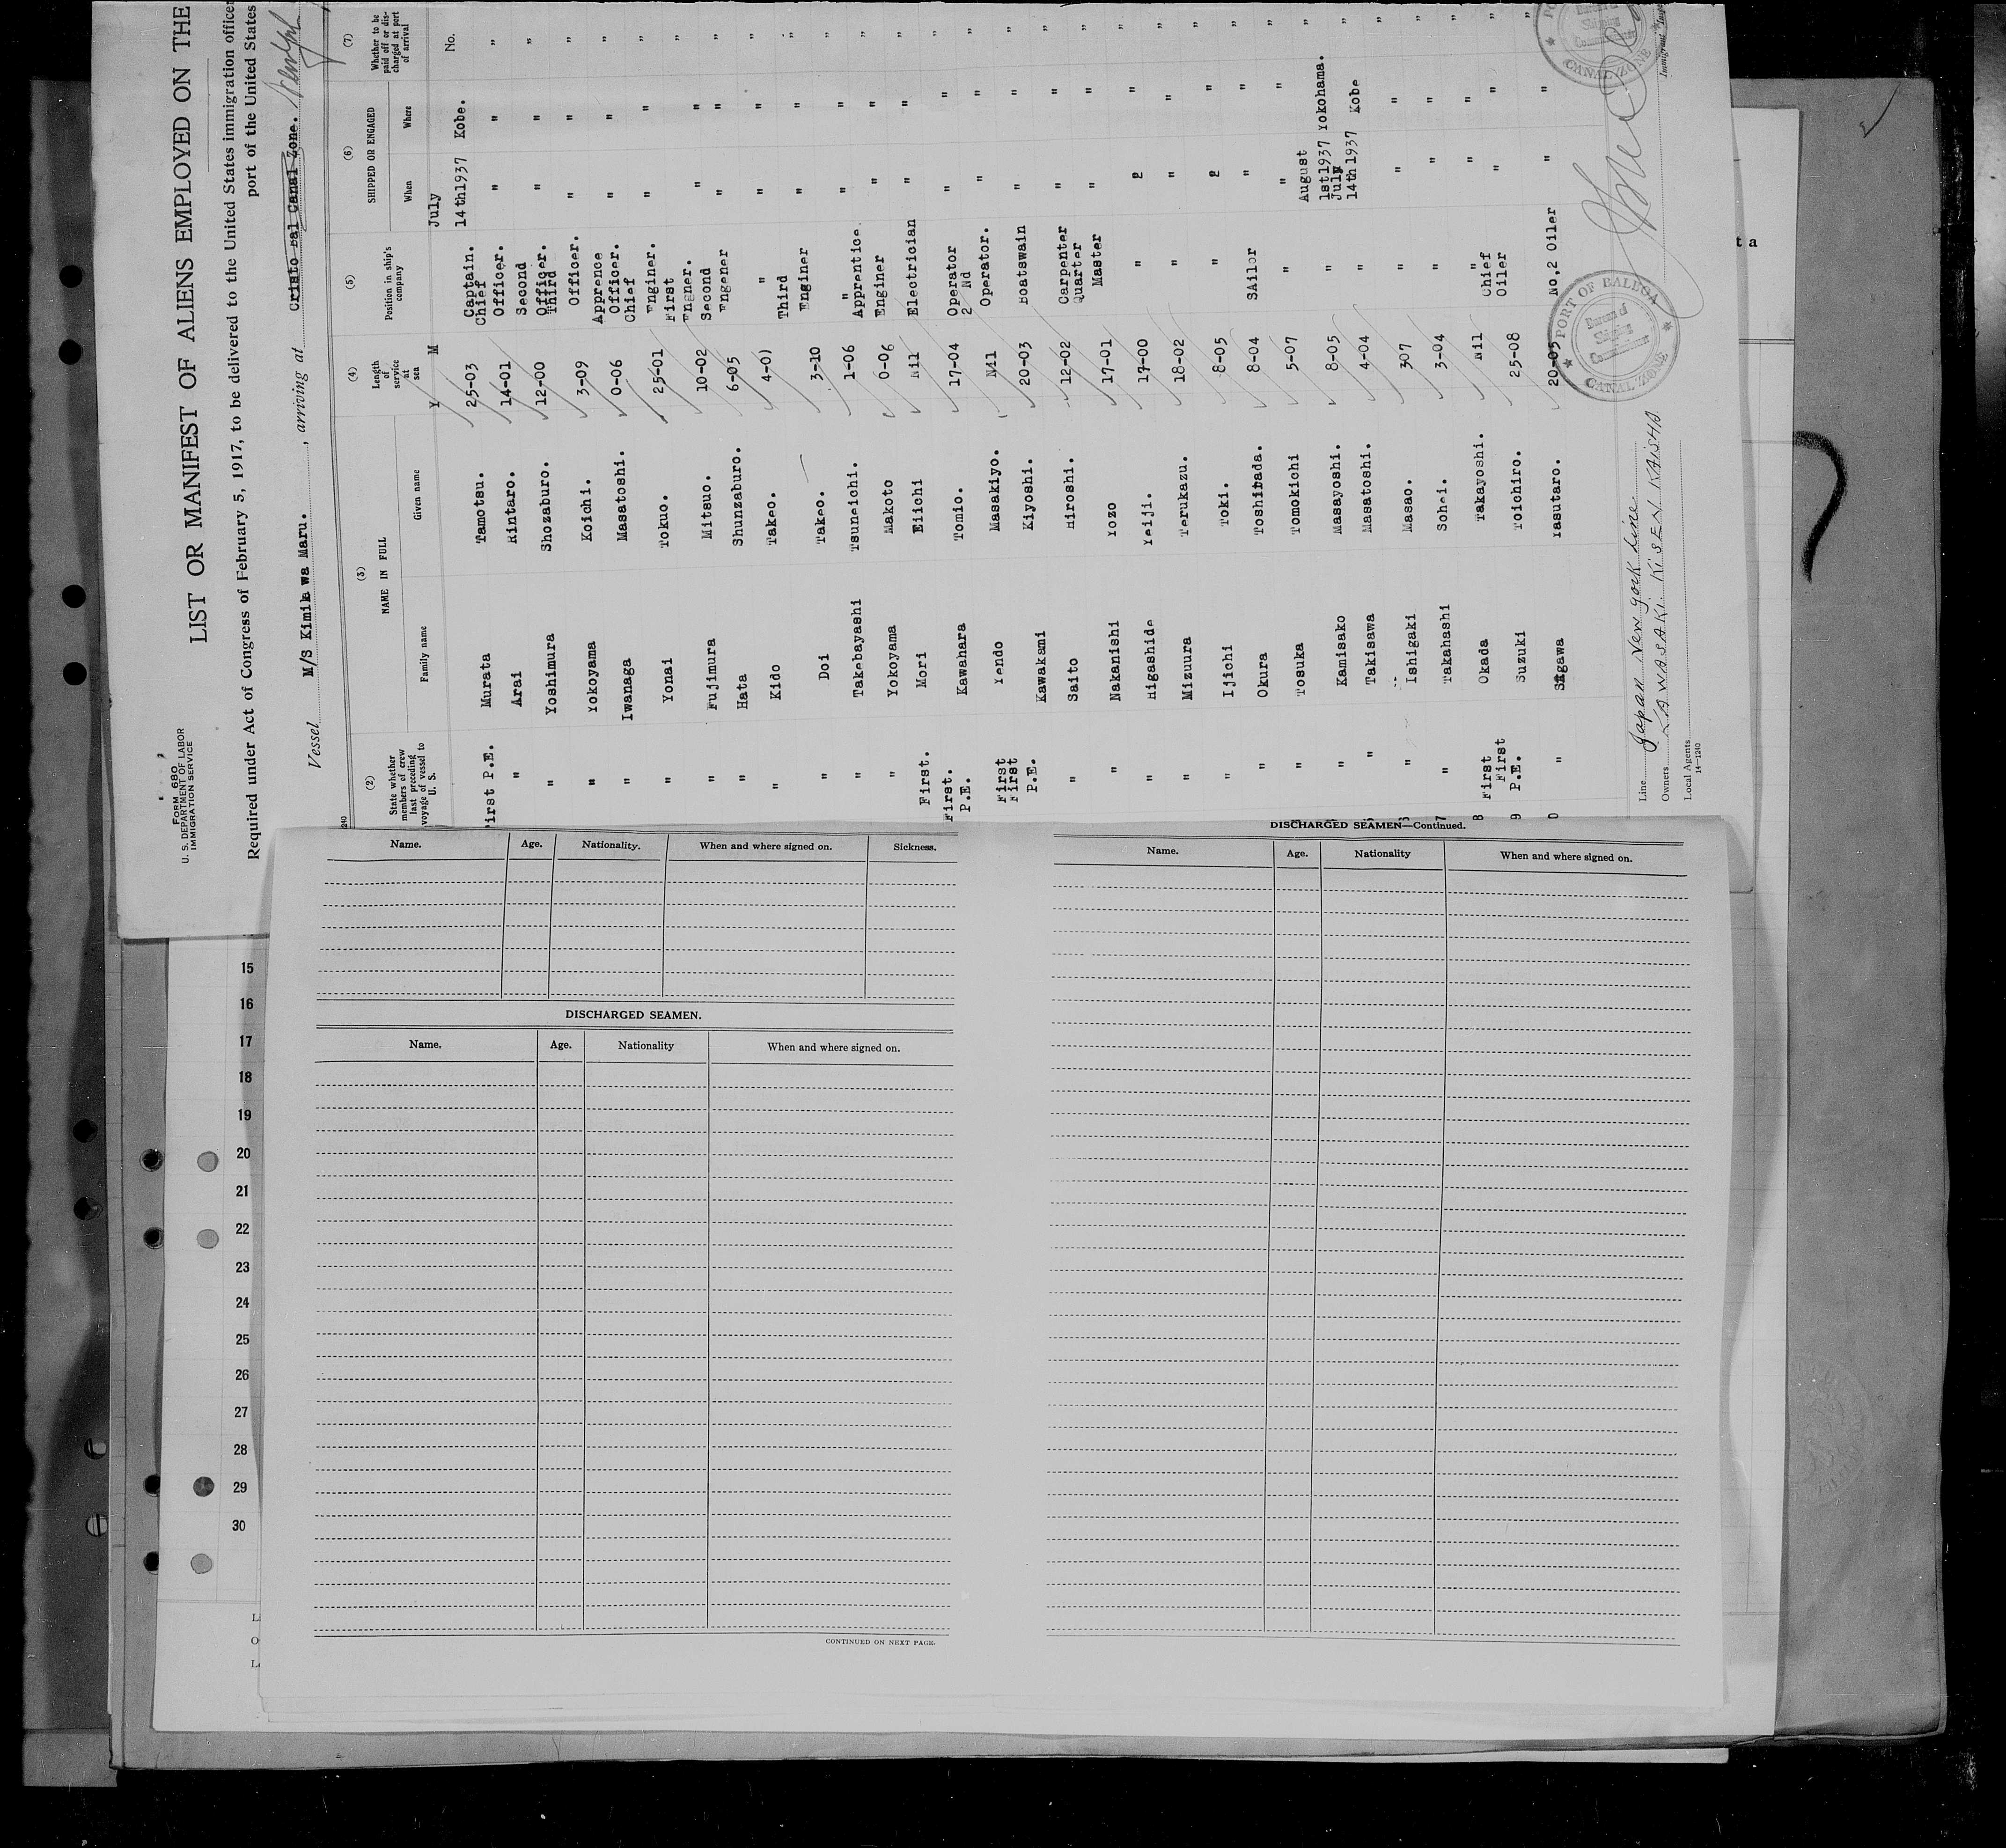 FORM 680
U. S. DEPARTMENT OF LABOR
IMMIGRATION SERVICE
LIST OR MANIFEST OF ALIENS EMPLOYED ON THE
Required under Act of Congress of February 5, 1917, to be delivered to the United States immigration officer
port of the United States
Vessel M/S Kimika wa Maru. , arriving at Cristo bal Canal Zone.
(2) (3) (4) (5) (6) (7)
State whether members of crew last preceding voyage of vessel to U. S.
NAME IN FULL
Family name Given name
Length of service at sea
Position in ship's company
SHIPPED OR ENGAGED
When Where
Whether to be paid off or discharged at port of arrival
Y M
First P.E. Murata Tamotsu. 25-03 Captain. July 14th1937 Kobe. No.
" Arai Rintaro. 14-01 Chief Officer. " " "
" Yoshimura Shozaburo. 12-00 Second Officer. " " "
" Yokoyama Koichi. 3-09 Third Officer. " " "
" Iwanaga Masatoshi. 0-06 Apprence Officer. " " "
" Yonai Tokuo. 25-01 Chief Enginer. " " "
" Fujimura Mitsuo. 10-02 First Engner. " " "
" Hata Shunzaburo. 6-05 Second Engener " " "
" Kido Takeo. 4-0) " " " "
" Doi Takeo. 3-10 Third Enginer " " "
" Takebayashi Tsuneichi. 1-06 " " " "
" Yokoyama Makoto 0-06 Apprentice. Enginer " " "
First. Mori Eiichi Nil Electrician " " "
First. P.E. Kawahara Tomio. 17-04 Operator " " "
First Yendo Masakiyo. Nil 2 Nd Operator. " " "
First P.E. Kawakami Kiyoshi. 20-03 Boatswain " " "
" Saito Hiroshi. 12-02 Carpenter " " "
" Nakanishi Yozo 17-01 Quarter Master " " "
" Higashide Yeiji. 17-00 " 2 " "
" Mizuura Terukazu. 18-02 " " " "
" Ijichi Toki. 8-05 " 2 " "
" Okura Toshitada. 8-04 SAilor " " "
" Tosuka Tomokichi 5-07 " " " "
" Kamisako Masayoshi. 8-05 " August 1st1937 Yokohama. "
" Takisawa Masatoshi. 4-04 " July 14th 1937 Kobe "
" Ishigaki Masao. 307 " " " "
7 " Takahashi Sohei. 3-04 " " " "
8 First Okada Takayoshi. Nil " " " "
9 First P.E. Suzuki Toichiro. 25-08 Chief Oiler " " "
0 " Sagawa Yasutaro. 20-05 No,2 Oiler " " "
Line Japan New york Line
Owners KAWASAKI KISEN KAISHA
Local Agents
14—1240
PORT OF BALBOA
Bureau of Shipping Commissioner
CANAL ZONE
Shipping
CANAL ZONE
Name. Age. Nationality. When and where signed on. Sickness.
DISCHARGED SEAMEN.
Name. Age. Nationality When and where signed on.
CONTINUED ON NEXT PAGE.
DISCHARGED SEAMEN—Continued.
Name. Age. Nationality When and where signed on.
15
16
17
18
19
20
21
22
23
24
25
26
27
28
29
30